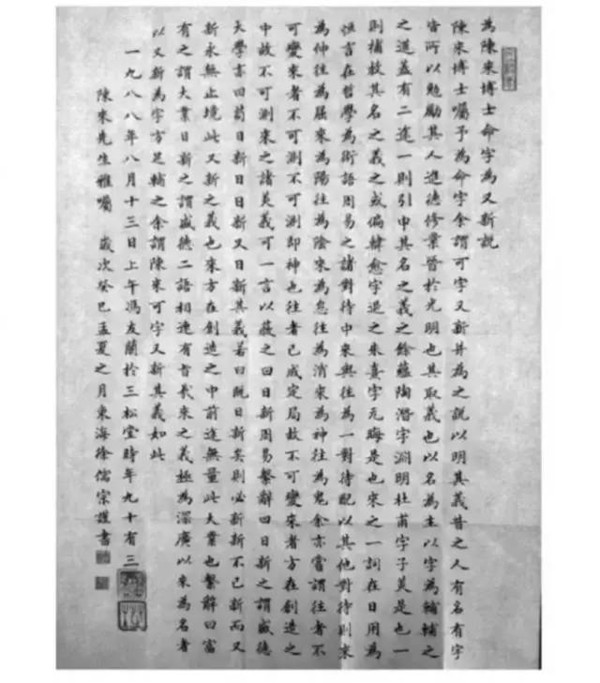 為陳來博士命字為又新說
陳來博士囑予為命字余謂可字又新并為之說以明其義昔之人有名有字
皆所以勉勵其人進德修業晉於光明也其取義也以名為主以字為輔輔之
之道蓋有二途一則引申其名之義之餘蘊陶潛字淵明杜甫字子美是也一
則補救其名之義之或偏韓愈字退之朱熹字元晦是也來之一詞在日用為
恒言在哲學為術語周易之諸對待中來與往為一對待配以其他對待則來
為伸往為屈來為陽往為陰來為息往為消來為神往為鬼余亦嘗謂往者不
可變來者不可測不可測即神也往者已成定局故不可變來者方在創造之
中故不可測來之諸義可一言以蔽之曰日新周易繫辭曰日新之謂盛德
大學亦曰苟日新日日新又日新其義若曰既日新矣則必新新不已新而又
新永無止境此又新之義也來方在創造之中前途無量此大業也繫辭曰富
有之謂大業日新之謂盛德二語相連有旨哉來之義極為深廣以來為名者
以又新為字方足輔之余謂陳來可字又新其義如此
一九八八年八月十三日上午馮友蘭於三松堂時年九十有三
陳來先生雅囑 歲次癸巳孟夏之月東海徐儒宗謹書